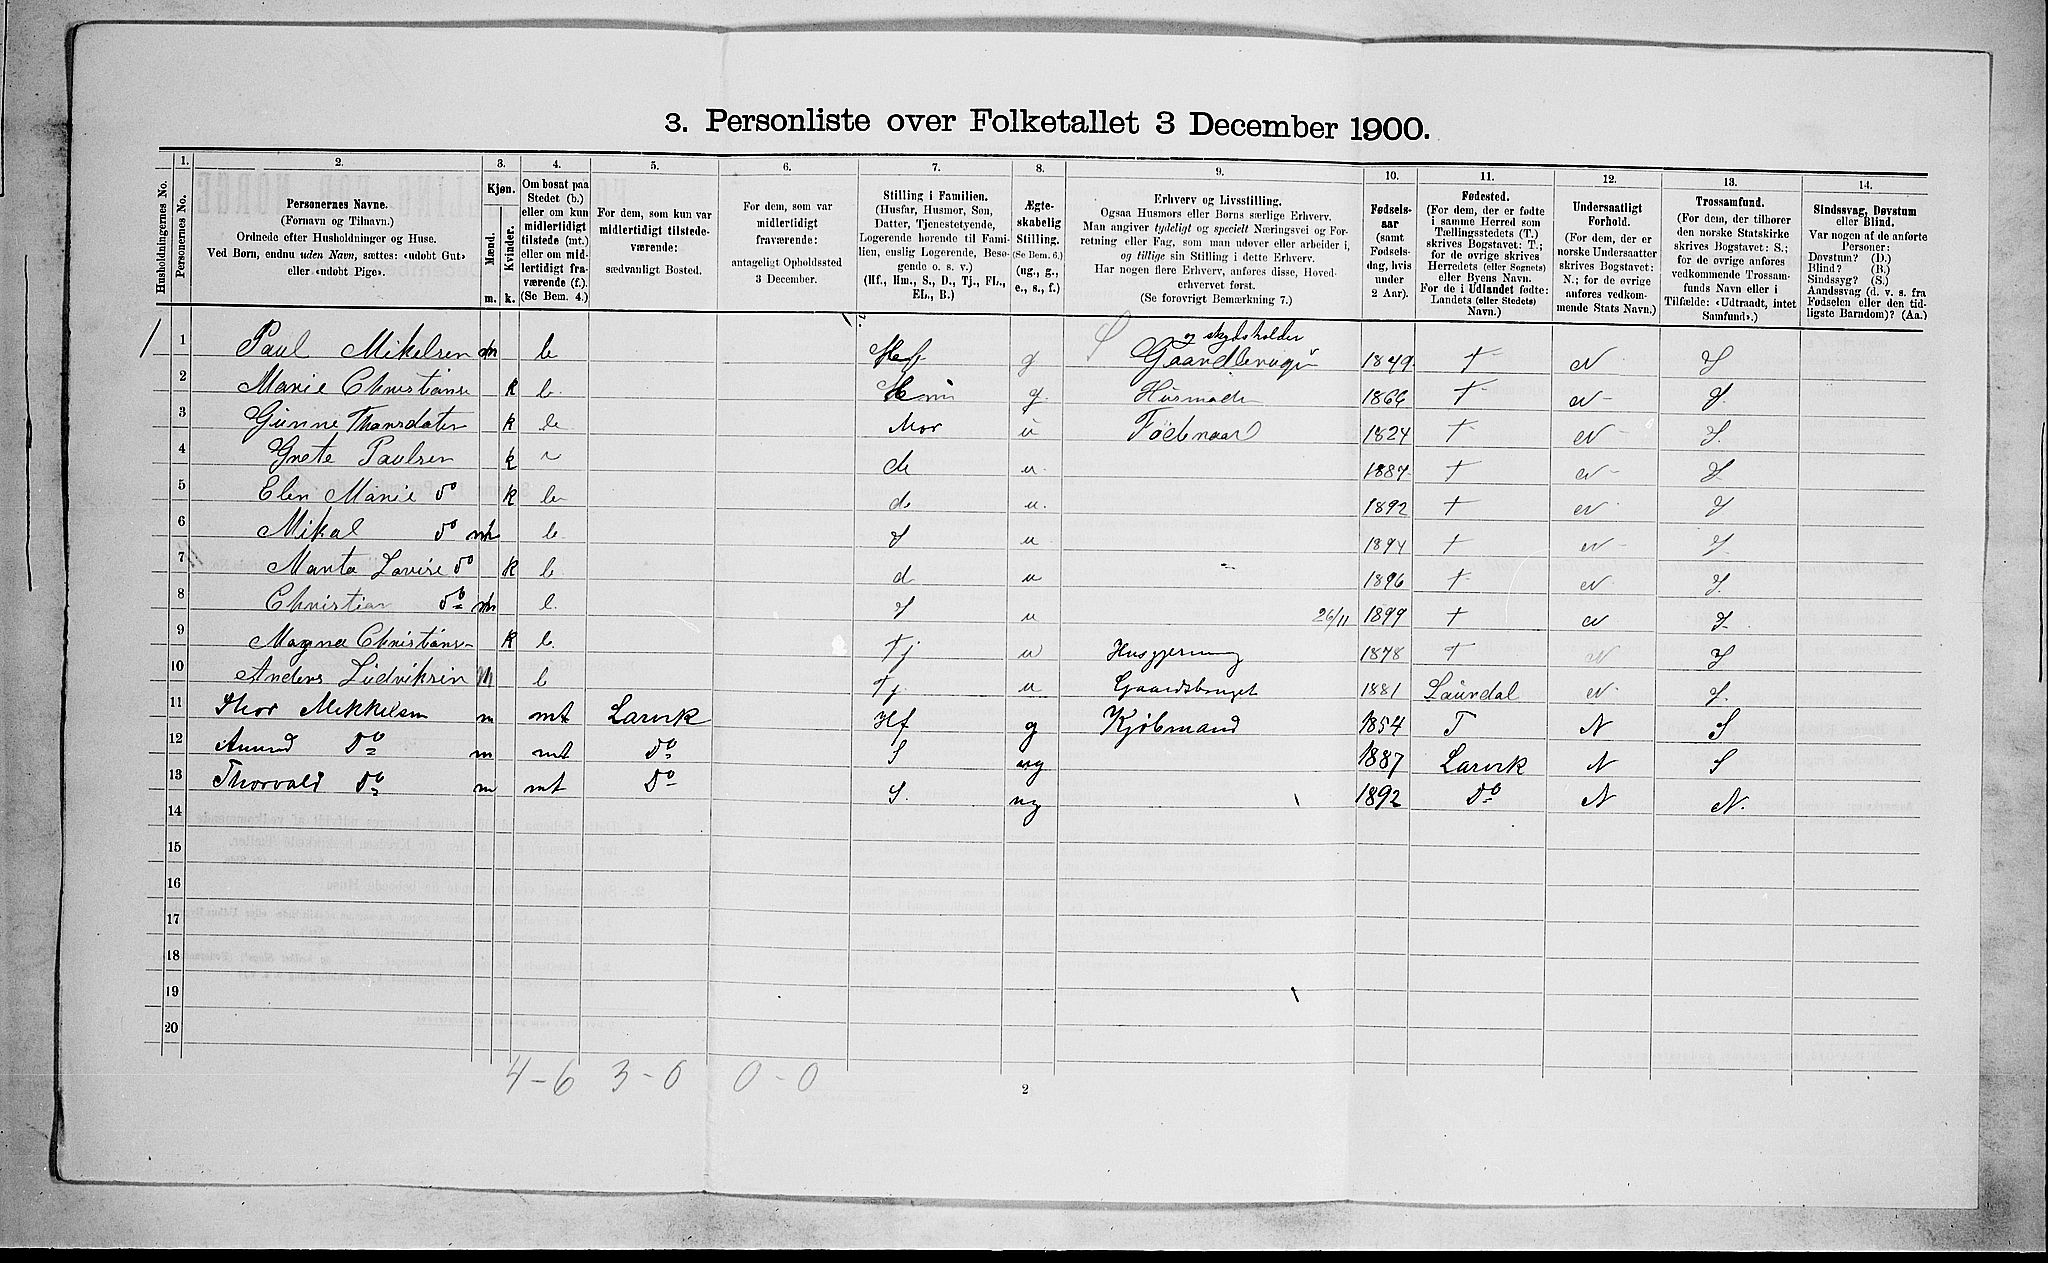 3. Personliste over Folketallet 3 December 1900.
1. 2. 3. 4. 5. 6. 7. 8. 9. 10. 11. 12. 13. 14.
Husholdningernes No.
Personernes No.
Personernes Navne.
(Fornavn og Tilnavn.)
Ordnede efter Husholdninger og Huse.
Ved Børn, endnu uden Navn, sættes: «udøbt Gut»
eller «udøbt Pige».
Kjøn.
Mænd. Kvinder.
m. k.
Om bosat paa
Stedet (b.)
eller om kun
midlertidigt
tilstede (mt.)
eller om mid-
lertidigt fra-
værende (f.)
(Se Bem. 4.)
For dem, som kun var
midlertidigt tilstede-
værende:
sædvanligt Bosted.
For dem, som var
midlertidigt
fraværende:
antageligt Opholdssted
3 December.
Stilling i Familien.
(Husfar, Husmor, Søn,
Datter, Tjenestetyende,
Logerende hørende til Fami-
lien, enslig Logerende, Besø-
gende o. s. v.)
(Hf., Hm., S., D., Tj., FL.,
EL., B.)
Ægte-
skabelig
Stilling.
(Se Bem. 6.)
(ug., g.,
e., s., f.)
Erhverv og Livsstilling.
Ogsaa Husmors eller Børns særlige Erhverv.
Man angiver tydeligt og specielt Næringsvei og For-
retning eller Fag, som man udøver eller arbeider i,
og tillige sin Stilling i dette Erhverv.
Har nogen flere Erhverv, anføres disse, Hoved-
erhvervet først.
(Se forøvrigt Bemærkning 7.)
Fødsels-
aar
(samt
Fødsels-
dag, hvis
under
2 Aar).
Fødested.
(For dem, der er fødte
i samme Herred som
Tællingsstedets (T.)
skrives Bogstavet: T.;
for de øvrige skrives
Herredets (eller Sognets)
eller Byens Navn.
For de i Udlandet fødte:
Landets (eller Stedets)
Navn.)
Undersaatligt
Forhold.
(For dem, der er
norske Undersaatter
skrives Bogstavet:
N.; for de øvrige
anføres vedkom-
mende Stats Navn.)
Trossamfund.
(For dem, der tilhører
den norske Statskirke
skrives Bogstavet: S.;
for de øvrige anføres
vedkommende Trossam-
funds Navn eller i
Tilfælde: «Udtraadt, intet
Samfund».)
Sindssvag, Døvstum
eller Blind.
Var nogen af de anførte
Personer:
Døvstum? (D.)
Blind? (B.)
Sindssyg? (S.)
Aandssvag (d. v. s. fra
Fødselen eller den tid-
ligste Barndom)? (Aa.)
og skydsholder
1 1 Paul Mikelsen m b Hf g Gaardbruger 1849 T N S
2 Marie Christians k b. Hm g. 1866 T N S.
3 Gunne Thorsdater k b Mor u Føderaad 1824 T N S.
4 Grete Paulsen k d u. 1887 T N S
5 Elen Marie do k b d u. 1892 T N S
6 Mikal do m b. S u 1894 T N S.
7 Marta Lovise do k b d u 1896 T N S.
8 Christian do m b. S u 26/11 1899 T N S.
9 Magna Christians k b Tj u Husgjerning 1878 T N S
10 Anders Ludviksen m b Tj. u Gaardsbruget 1881 Laurdal N S.
11 Thor Mikkelsen m mt Larvik Hf g Kjøbmand 1854 T N S
12 Amund Do m mt Do S ug 1887 Larvik N S
13 Thorvald Do m mt Do S. ug 1892 Do N N.
14
15
16
17
18
19
20
4-6 3-0 0-0
2